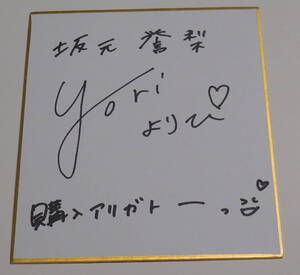 坂元誉梨
yori♡
よりぴ
購入アリガトーっ